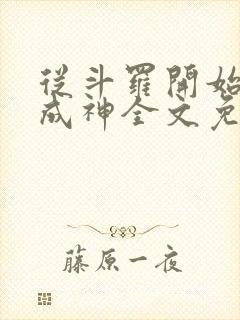 從斗羅開始
成神全文免
藤原一夜